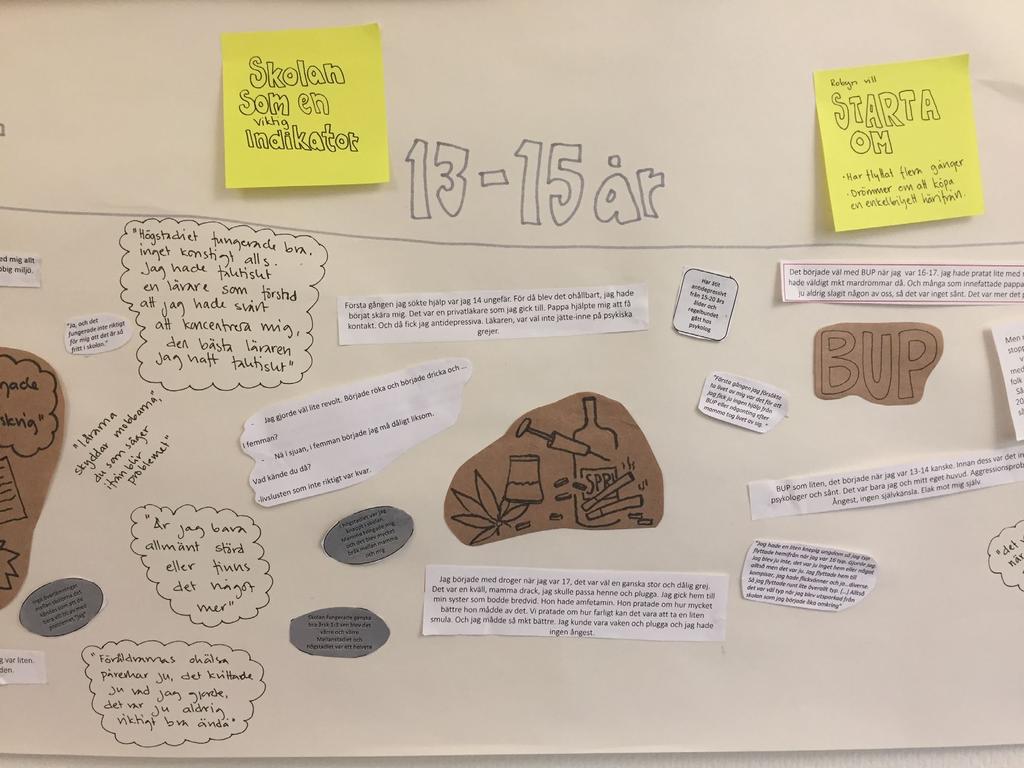 Skolan
som en
viktig
Indikator
13-15 år
Robyn vill
STARTA
OM
• Har flyttat flera gånger
• Drömmer om att köpa
en enkelbiljett härifrån.
ed mig allt
big miljö.
"Ja, och det
fungerade inte riktigt
för mig att det är så
fritt i skolan."
"Högstadiet fungerade bra,
inget konstigt alls.
Jag hade faktiskt
en lärare som förstod
att jag hade svårt
att koncentrera mig,
den bästa läraren
jag haft faktiskt"
Första gången jag sökte hjälp var jag 14 ungefär. För då blev det ohållbart, jag hade
börjat skära mig. Det var en privatläkare som jag gick till. Pappa hjälpte mig att få
kontakt. Och då fick jag antidepressiva. Läkaren, var väl inte jätte-inne på psykiska
grejer.
Har ätit
antidepressivt
från 15-20 års
ålder och
regelbundet
gått hos
psykolog
Det började väl med BUP när jag var 16-17. jag hade pratat lite med
hade väldigt mkt mardrömmar då. Och många som innefattade pappa
ju aldrig slagit någon av oss, så det var inget sånt. Det var mer det
BUP
"Första gången jag försökte
ta livet av mig var det för att
jag fick ju ingen hjälp från
BUP eller någonting efter
mamma tog livet av sig."
Men
stopp
med
folk
Så
20
"Lärarna
skyddar mobbarna,
du som säger
ifrån blir
problemet"
- Jag gjorde väl lite revolt. Började röka och började dricka och ...
I femman?
- Nä i sjuan, i femman började jag må dåligt liksom.
Vad kände du då?
-livslusten som inte riktigt var kvar.
SPRI
BUP som liten, det började när jag var 13-14 kanske. Innan dess var det in
psykologer och sånt. Det var bara jag och mitt eget huvud. Aggressionsprob
Ångest, ingen självkänsla. Elak mot mig själv.
"Är jag bara
allmänt störd
eller finns
det något
mer"
I högstadiet var jag
knappt i skolan.
Mamma tvingade mig
och det blev mycket
bråk mellan mamma
och mig
"Jag hade en liten knepig ungdom så jag typ
flyttade hemifrån när jag var 16 typ.
Jag började med droger när jag var 17, det var väl en ganska stor och dålig grej.
Det var en kväll, mamma drack, jag skulle passa henne och plugga. Jag gick hem till
min syster som bodde bredvid. Hon hade amfetamin. Hon pratade om hur mycket
bättre hon mådde av det. Vi pratade om hur farligt kan det vara att ta en liten
smula. Och jag mådde så mkt bättre. Jag kunde vara vaken och plugga och jag hade
ingen ångest.
Skolan fungerade ganska
bra årsk 1-3 sen blev det
värre och värre
Mellanstadiet och
högstadiet var ett helvete
g var liten.
den.
"Föräldrarnas ohälsa
påverkar ju, det kvittade
ju vad jag gjorde,
det var ju aldrig
viktigt bra ändå"